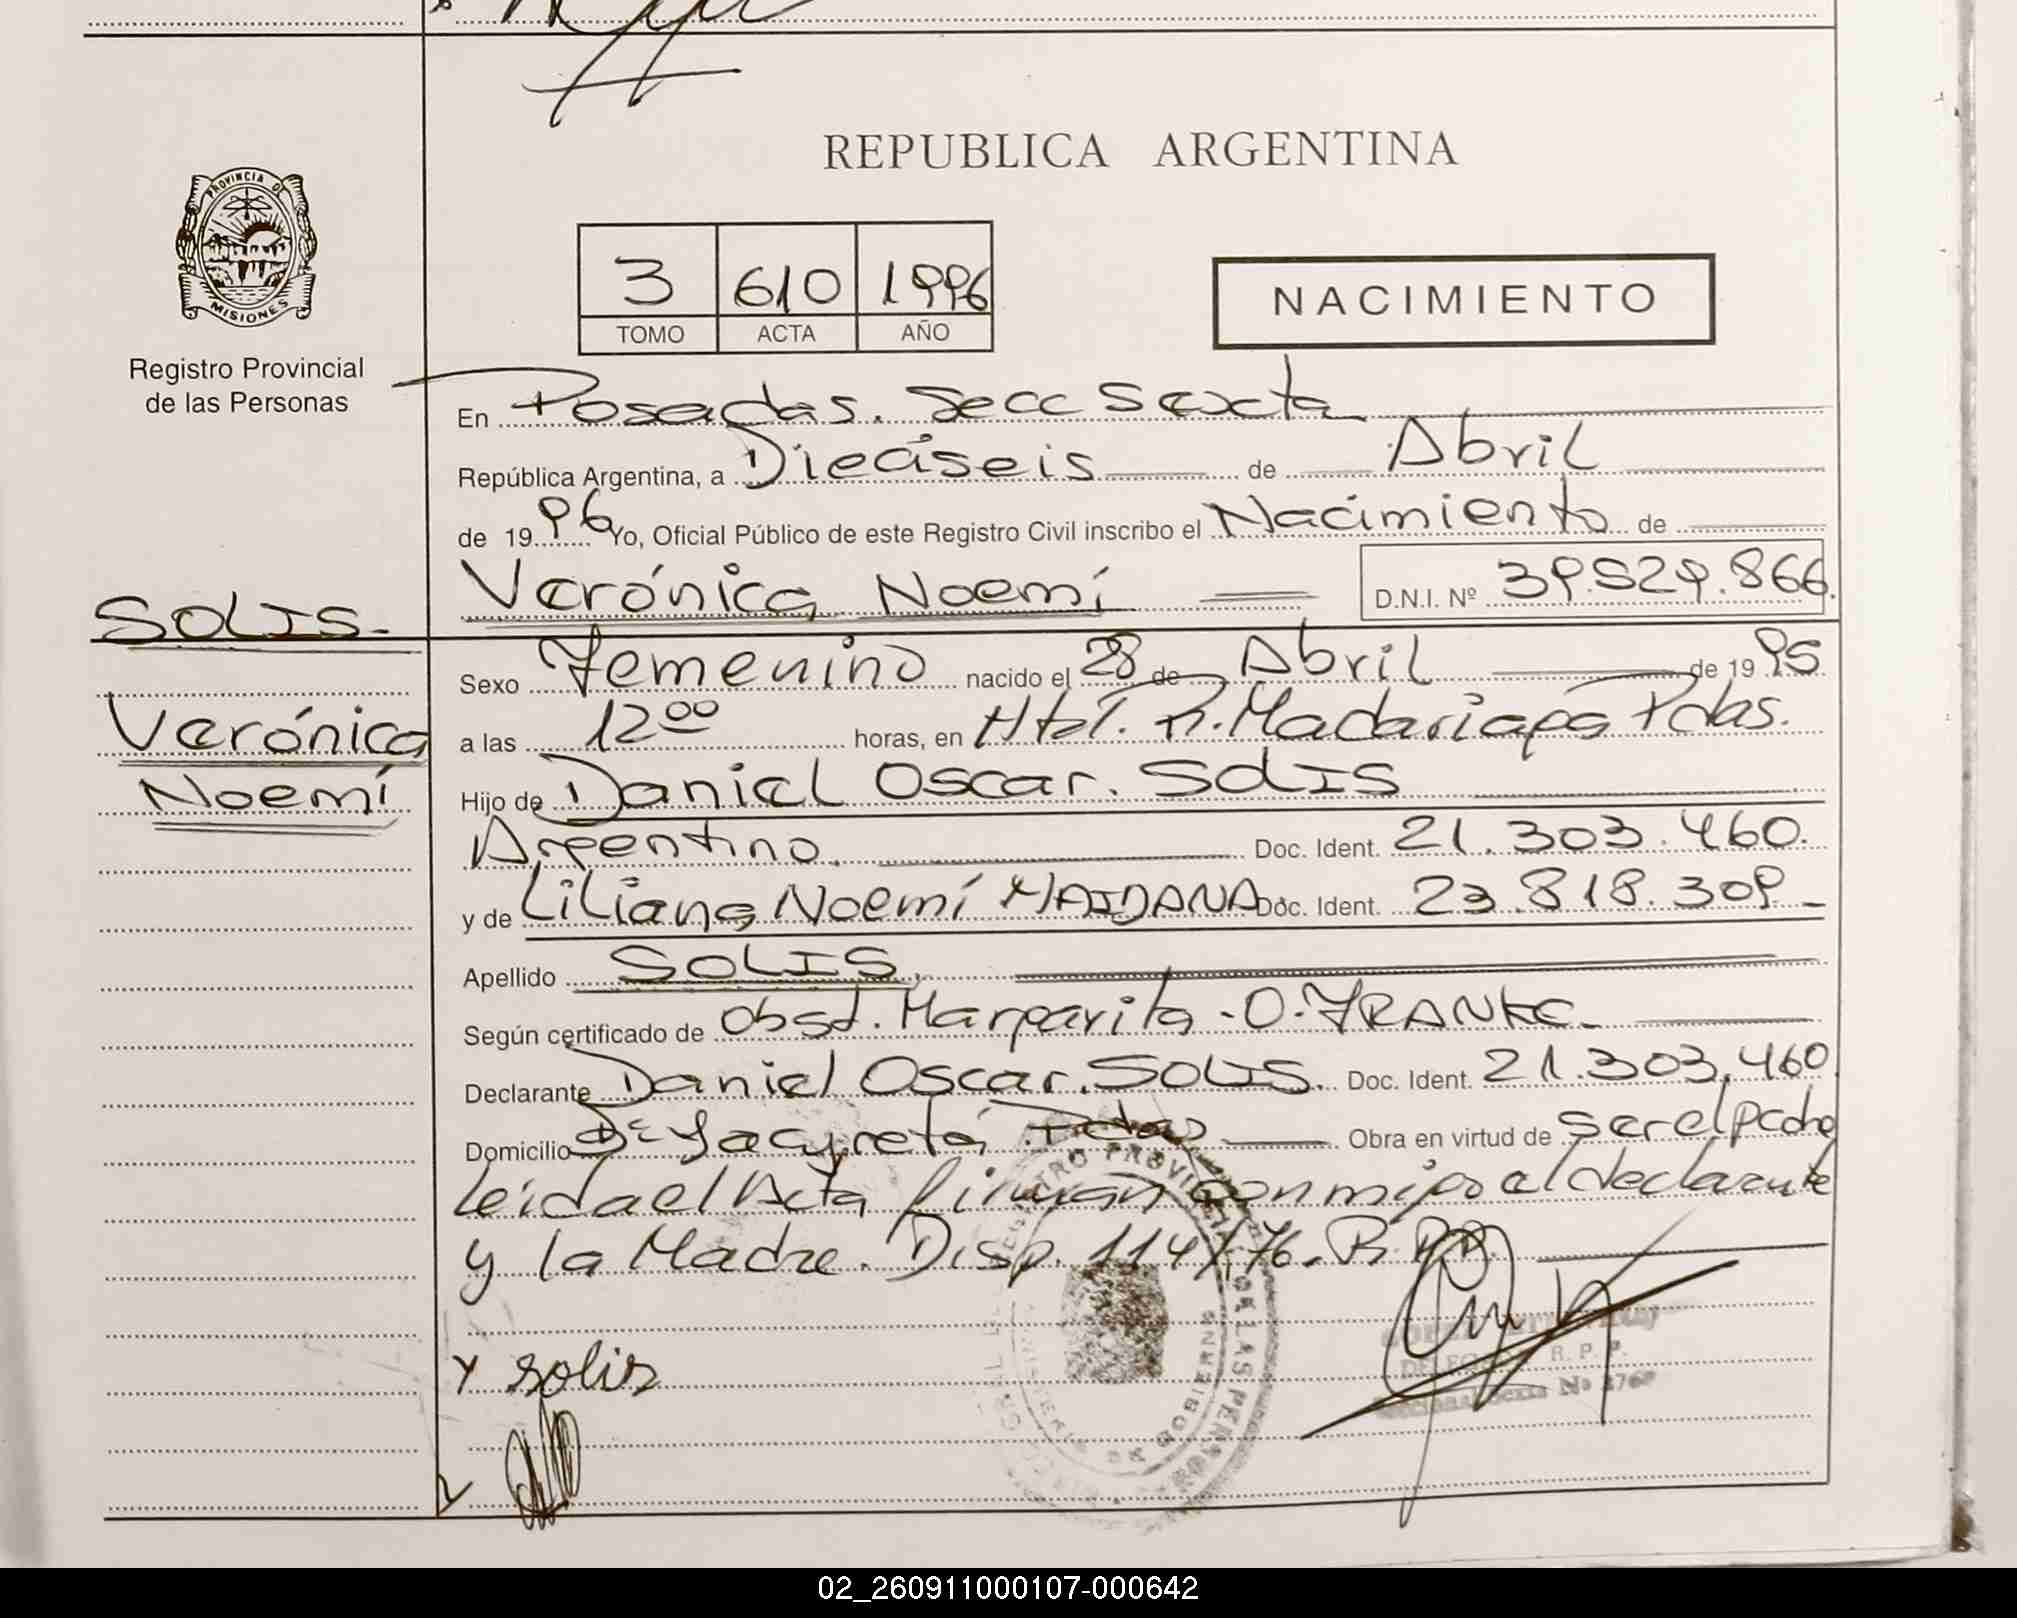 REPUBLICA ARGENTINA
PROVINCIA DE
MISIONES
Registro Provincial
de las Personas
3 610 1996
TOMO ACTA AÑO
NACIMIENTO
En Posadas. Secc Sexta
República Argentina, a Dieciseis de Abril
de 1996 Yo, Oficial Público de este Registro Civil inscribo el Nacimiento de
Verónica Noemí D.N.I. Nº 39.529.866.
SOLIS.
Verónica
Noemí
Sexo Femenino nacido el 28 de Abril de 1995
a las 12 00 horas, en Htal. R. Madariaga Pdas.
Hijo de Daniel Oscar. SOLIS
Argentino. Doc. Ident. 21.303.460.
y de Liliana Noemí MAIDANA Doc. Ident. 23.818.309
Apellido SOLIS.
Según certificado de Obst. Margarita. O. FRANKE
Declarante Daniel Oscar. SOLIS. Doc. Ident. 21.303.460
Domicilio Yacyretá Pdas Obra en virtud de ser el padre
leida el Acta firman conmigo el declarante
y la Madre. Disp. 114/76. R.
Y solis
DE LAS PERSONAS
DE GOBIERNO
R. P. P.
02_260911000107-000642